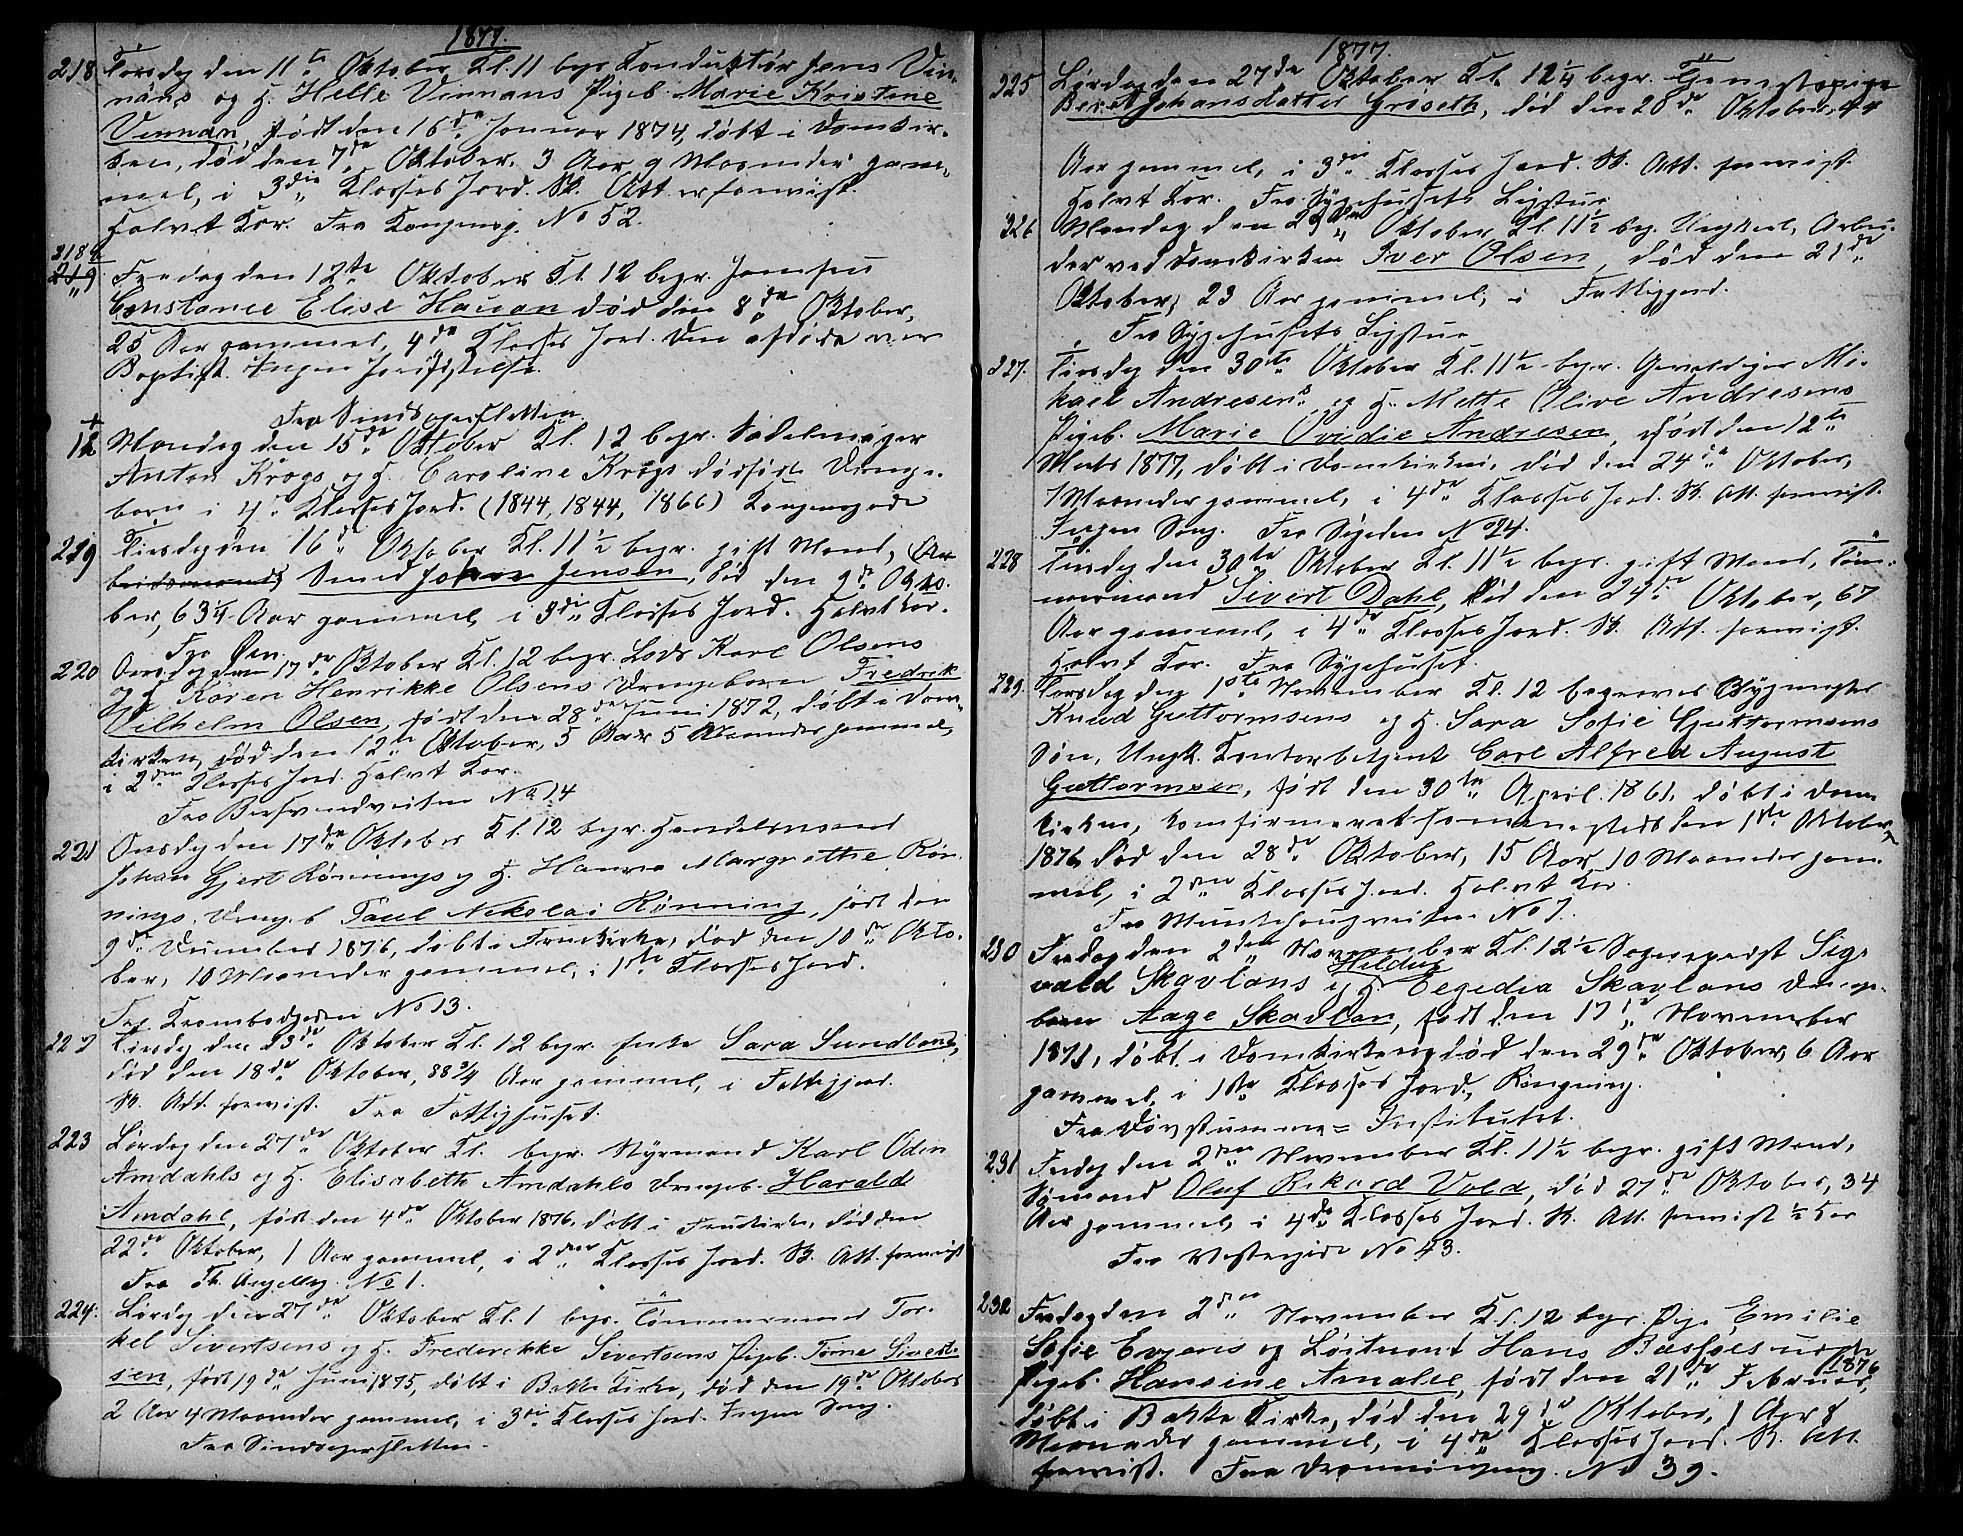 1877.
218 Torsdag den 11te Oktober Kl. 11 begr. Konduktør Jens Vin-
nans og H. Helle Vinnans Pigeb. Marie Kristine
Vinnan, født den 16de Januar 1874, døbt i Domkir-
ken, død den 7de Oktober, 3 Aar 9 Maaneder gam-
mel, i 3die Klasses Jord. Sk. Att. er forevist.
Halvt Kor. Fra Kongensg. No 52.
218b
219 Fredag den 12te Oktober Kl. 12 begr. Jomfru
Constance Elise Hauan død den 8de Oktober,
25 Aar gammel, 4de Klasses Jord. Den afdøde var
Baptist. Ingen Jordfæstelse.
Fra Sindssygeasylet
+
12 Mandag den 15de Oktober Kl. 12 begr. Sadelmager
Anton Krogs og H. Caroline Krogs dødfødte Drenge-
børn i 4de Klasses Jord. (1844, 1844, 1866) Kongensgade
219 Tirsdag den 16de Oktober Kl. 11½ begr. gift Mand, (Ar-
beidsmand) Svend Johan Jensen, død den 9de Okto-
ber, 63¼ Aar gammel, i 3die Klasses Jord. Halvt Kor.
Fra Øen.
220 Onsdag den 17de Oktober Kl. 12 begr. Lods Karl Olsens
og H. Karen Henrikke Olsens Drengebarn Fredrik
Vilhelm Olsen, født den 28de Juni 1872, døbt i Dom-
kirken, død den 12te Oktober, 5 Aar 5 Maaneder gammel,
i 2den Klasses Jord. Halvt Kor.
Fra Bersvendveiten No 14
221 Onsdag den 17de Oktober Kl. 12 begr. Handelsmand
Johan Gjert Rønnings og H. Hanna Margrethe Røn-
nings Drengeb. Paul Nikolai Rønning, født den
9de December 1876, døbt i Fruekirke, død den 10de Okto-
ber, 10 Maaneder gammel, i 1ste Klasses Jord.
Fra Krambodgaden No 13.
222 Tirsdag den 23de Oktober Kl. 12 begr. Enke Sara Sundland,
død den 18de Oktober, 88¾ Aar gammel, i Fattigjord.
Sk. Att. forevist. Fra Fattighuset.
223 Lørdag den 27de Oktober Kl. begr. Styrmand Karl Odin
Amdahls og H. Elisabeth Amdahls Drengeb. Harald
Amdahl, født den 4de Oktober 1876, døbt i Fruekirke, død den
22de Oktober, 1 Aar gammel, i 2den Klasses Jord. Sk. Att. forevist
Fra Th. Angellsg. No 1.
224. Lørdag den 27de Oktober Kl. 1 begr. Tømmermand Tor-
kel Sivertsens og H. Frederikke Sivertsens Pigeb. Tørne Sivert-
sen, født 19de Juni 1875, døbt i Bakke Kirke, død den 19de Oktober
2 Aar 4 Maaneder gammel, i 3die Klasses Jord. Ingen Sang.
Fra Sindssygeasylet.
1877.
225 Lørdag den 27de Oktober Kl. 12¼ begr. Tjenestepige
Beret Johansdatter Grøseth, død den 20de Oktober, 44
Aar gammel, i 3die Klasses Jord. Sk. Att. forevist.
Halvt Kor. Fra Sygehusets Ligstue
226 Mandag den 29de Oktober Kl. 11½ bg. Ungkarl, Arbei-
der ved Domkirken Iver Olsen, død den 21de
Oktober, 23 Aar gammel, i Fattigjord.
Fra Sygehusets Ligstue
227. Tirsdag den 30te Oktober Kl. 11½ begr. Gevaldiger Mi-
kael Andresens og H. Mette Olive Andresens
Pigeb. Marie Ovidie Andresen, født den 12te
Marts 1877, døbt i Domkirken, død den 24de Oktober,
7 Maaneder gammel, i 4de Klasses Jord. Sk. Att. forevist.
Ingen Sang. Fra No 94.
228 Tirsdag den 30te Oktober Kl. 11½ begr. gift Mand, Tøm-
mermand Sivert Dahl, død den 24de Oktober, 67
Aar gammel, i 4de Klasses Jord. Sk. Att. forevist.
Halvt Kor. Fra Sygehuset.
229. Torsdag den 1ste November Kl. 12 begraves Bygmester
Knud Guttormsens og H. Sara Sofie Guttormsens
Søn, Ungk. Kontorbetjent Carl Alfred August
Guttormsen, født den 30te April 1861, døbt i Dom-
kirken, konfirmeret sammesteds den 1ste Oktober
1876, død den 28de Oktober, 15 Aar 10 Maaneder gam-
mel, i 2den Klasses Jord. Halvt Kor.
Fra Munkhaugveiten No 7.
230 Fredag den 2den November Kl. 12½ Sogneprest Sig-
vald Skavlans og H. Hildur Cegedia Skavlans Drenge-
barn Aage Skavlan, født den 17de November
1871, døbt i Domkirken, død den 29de Oktober, 6 Aar
gammel, i 1ste Klasses Jord, Ringning.
Fra Døvstumme-Institutet.
231 Fredag den 2den November Kl. 11½ begr. gift Mand,
Sømand Oluf Rikard Vold, død 27de Oktober, 34
Aar gammel, i 4de Klasses Jord. Sk. Att. forevist ½ Kor
Fra Vestregade No 43.
232 Fredag den 2den November Kl. 12 begr. Pige Emilie
Sofie Evjens og Løitnant Hans Bæsføes uægte
Pigeb. Hansine Amalie, født den 21de Februar 1876,
døbt i Bakke Kirke, død den 29de Oktober, 1 Aar 8
Maaneder gammel, i 4de Klasses Jord. Sk. Att.
forevist. Fra Dronningensg. No 39.